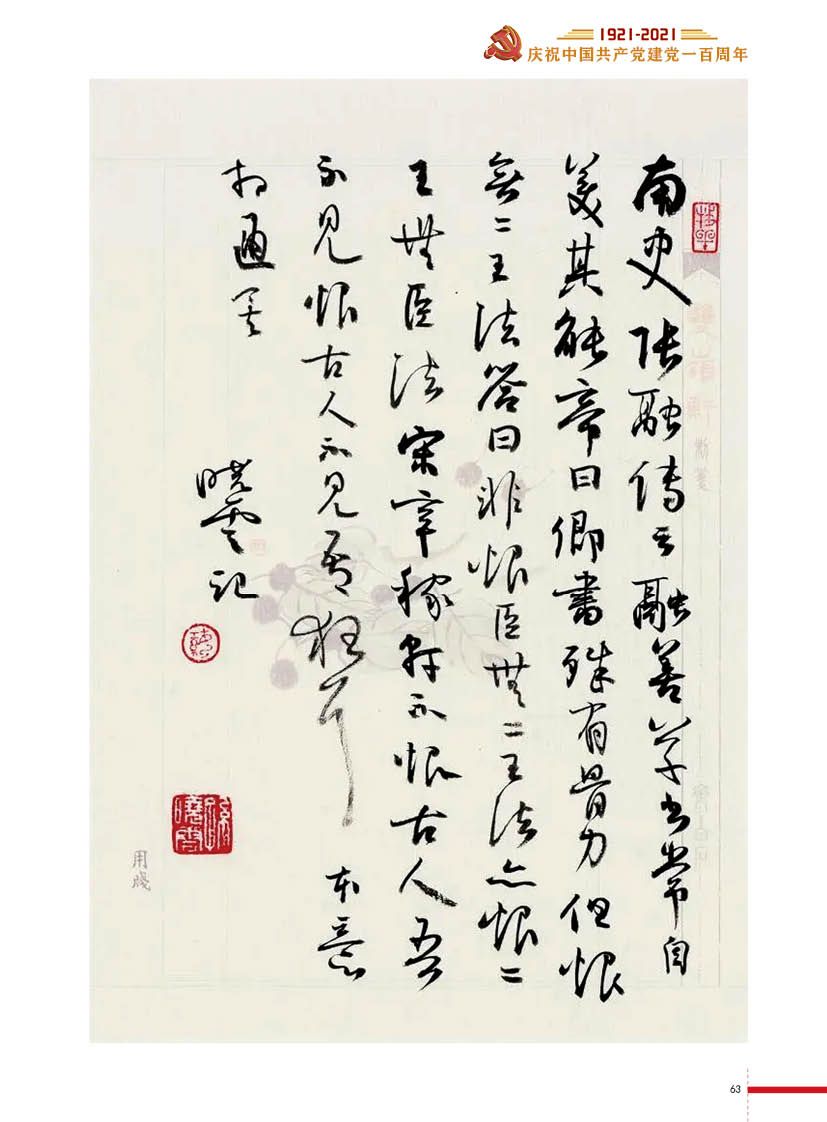 1921-2021
庆祝中国共产党建党一百周年
南史张融传云融善草书常自
美其能帝曰卿书殊有骨力但恨
无二王法答曰非恨臣无二王法亦恨二
王无臣法宋辛稼轩不恨古人吾
不见恨古人不见吾狂耳 本意
相通矣
晓云记
用笺
63